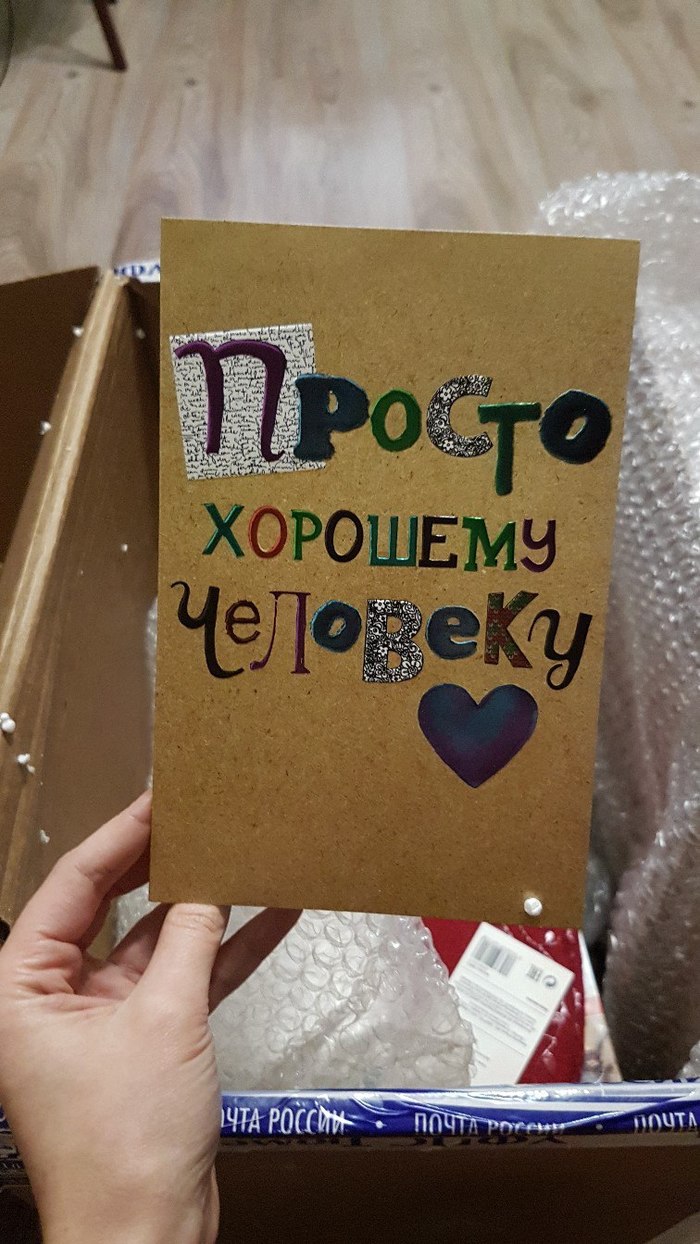 Просто
хорошему
человеку
ПОЧТА РОССИИ • ПОЧТА РОССИИ • ПОЧТА